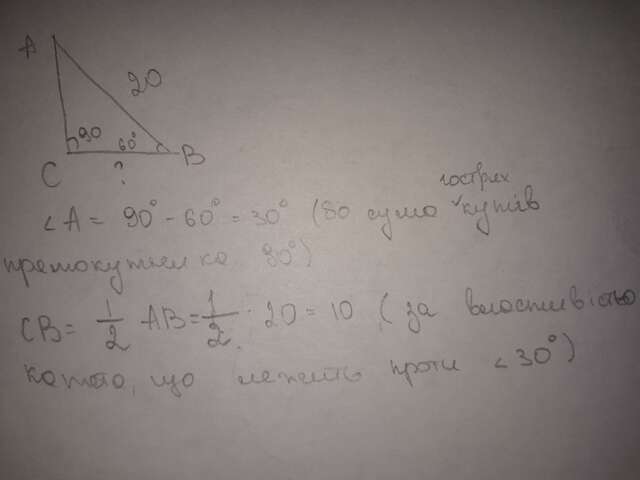 A
20
90
60°
B
C
?
∠A = 90° - 60° = 30° (бо сума гострих кутів
прямокутника 90°)
CB = 1/2 AB = 1/2 · 20 = 10 (за властивістю
катета, що лежить проти ∠30°)